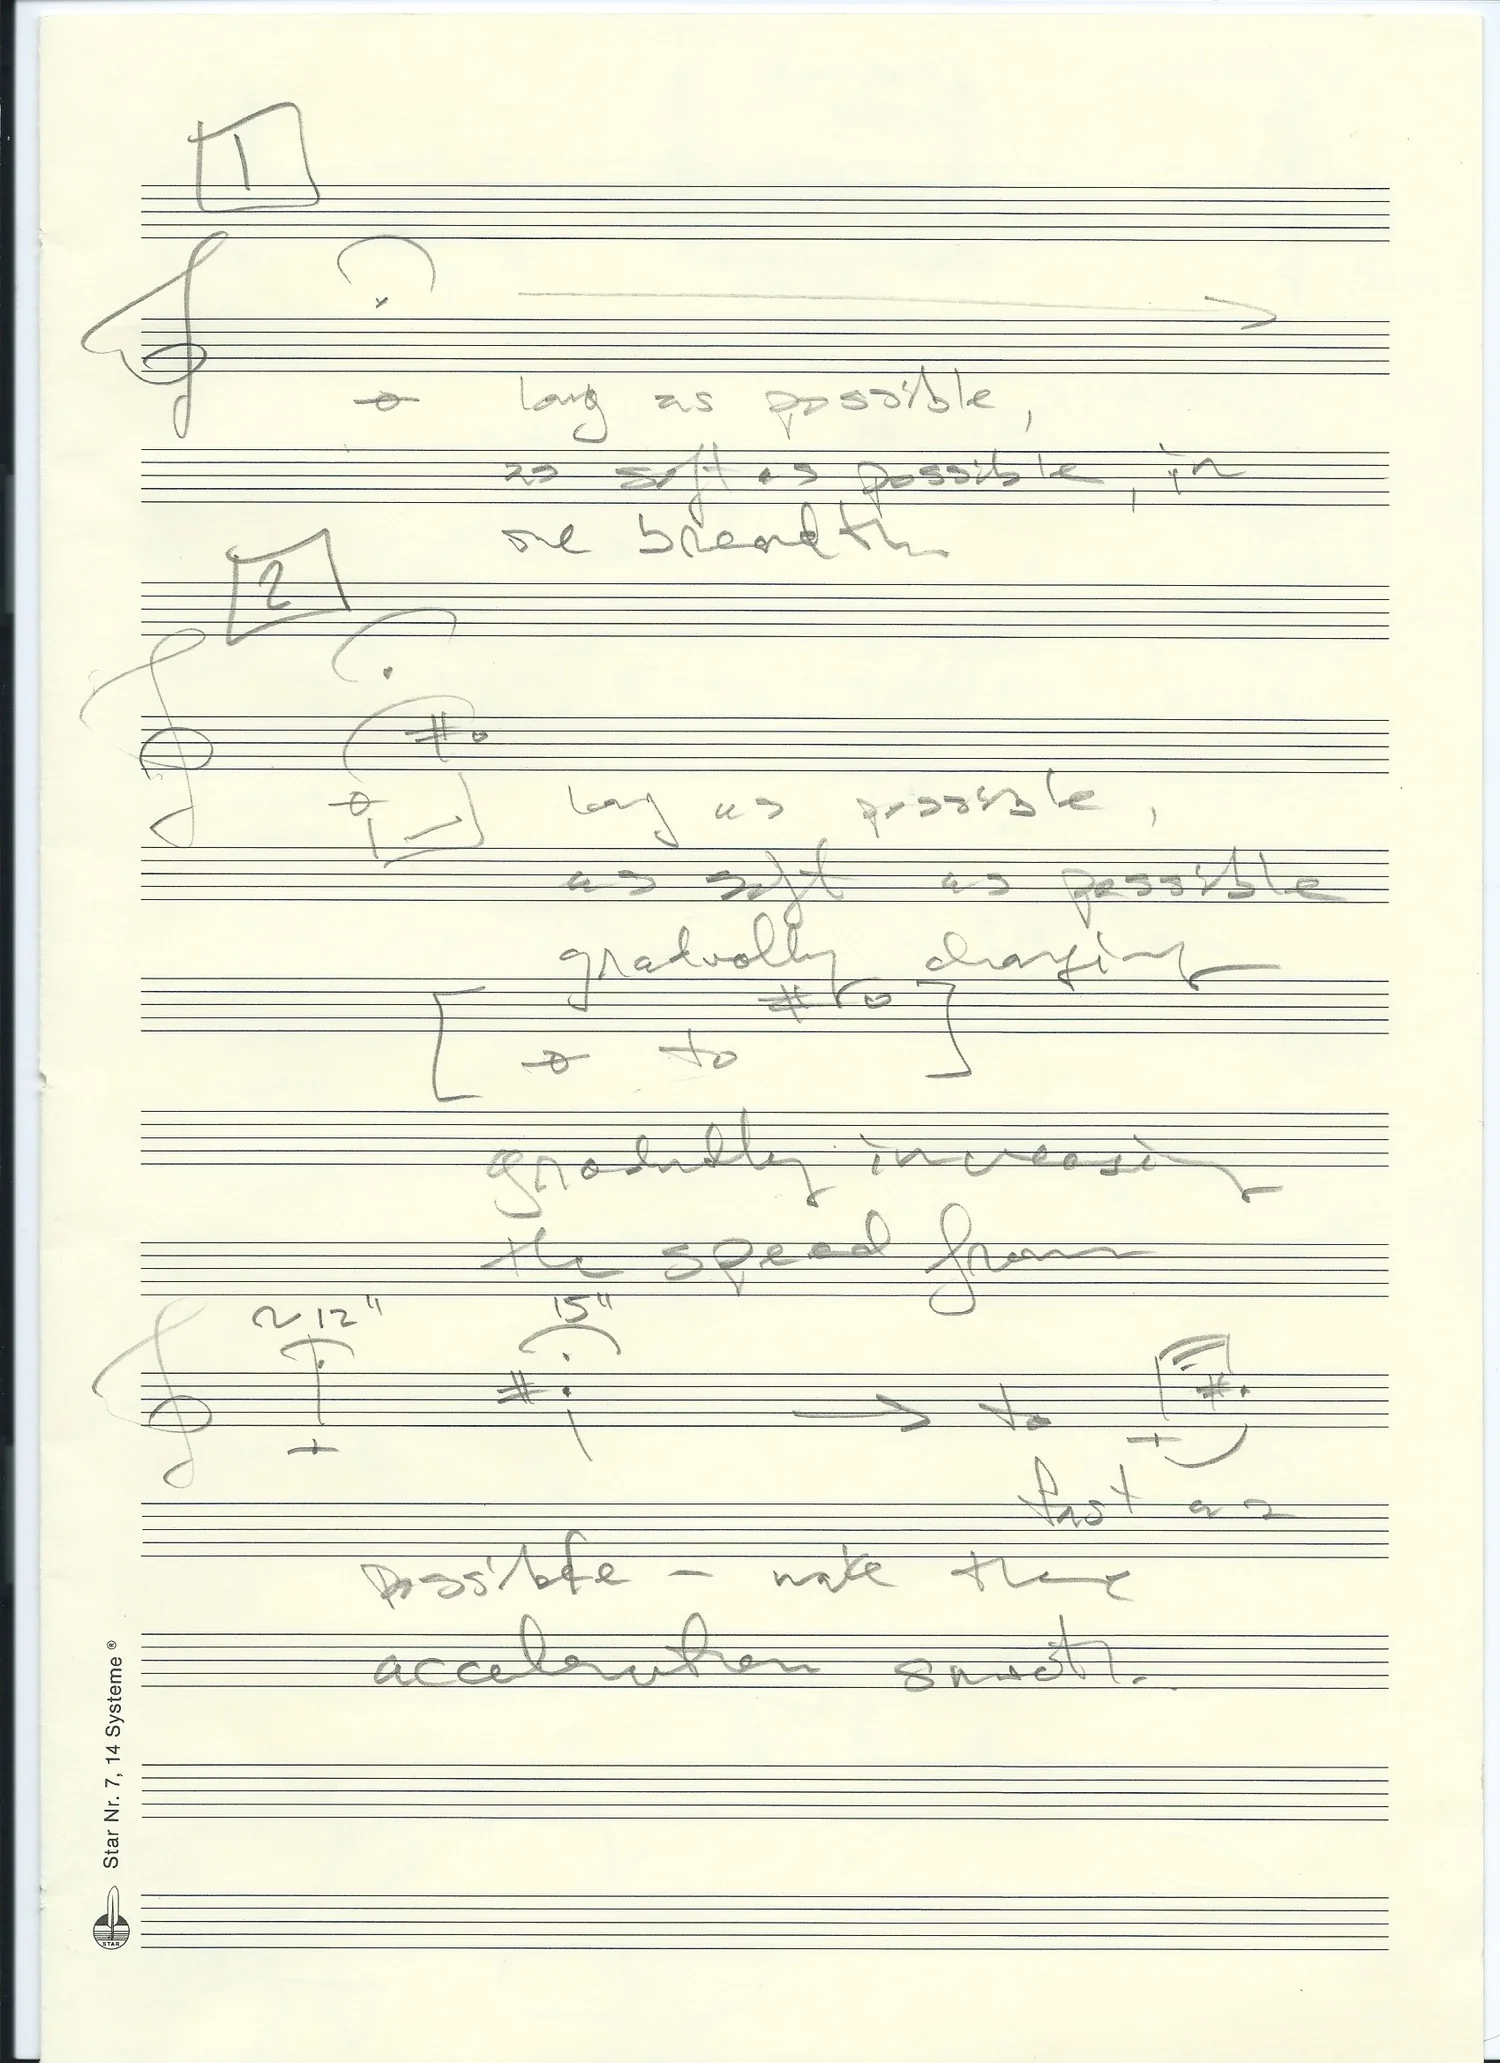 1
long as possible,
as soft as possible, in
one breadth
2
long as possible,
as soft as possible
gradually changing
[ to ]
gradually increasing
the speed from
~12" 15"
to
fast as
possible – make the
acceleration smooth.
Star Nr. 7, 14 Systeme ®
STAR